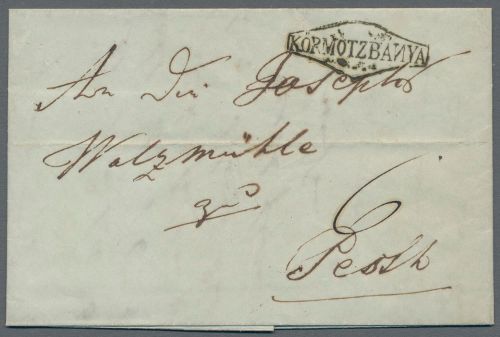 KÖRMOTZBANYA
An die Josephs
Walzmühle
zu
6
Pesth